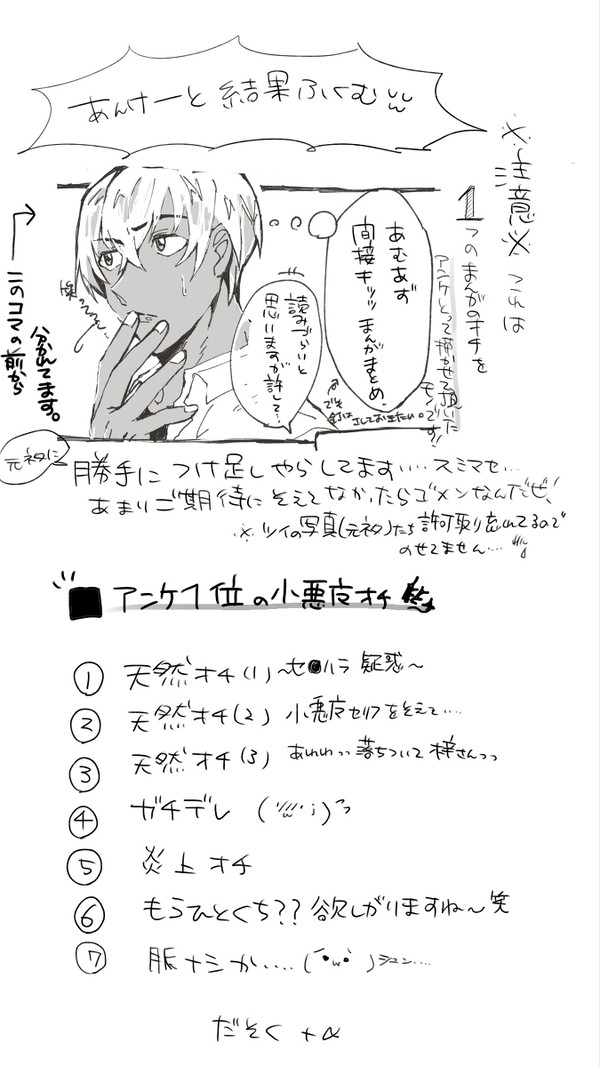 あんけーと結果ふくむww
※注意※ これは
1つのまんがのオチを
アンケとって描かせて頂いた
モノです!
あむあず
間接キッッまんがまとめ。
でも釘はさしておきたい。
読みづらいと
思いますが許して…
このコマの前から
分かれてます。
元ネタに
勝手につけ足しやらしてます‥‥スミマセ…
あまりご期待にそえてなかったらゴメンなんだぜ、
※ツイの写真(元ネタ)たち許可取り忘れてるので
のせてません…
■アンケ1位の小悪魔オチ
① 天然オチ(1)~セ●ハラ疑惑~
② 天然オチ(2) 小悪魔セリフをそえて‥‥
③ 天然オチ(3) あわわっっ落ちついて梓さんっっ
④ ガチデレ
⑤ 炎上オチ
⑥ もうひとくち??欲しがりますね~笑
⑦ 脈ナシか‥‥(´•ω•`)シュン‥‥
だそく +α